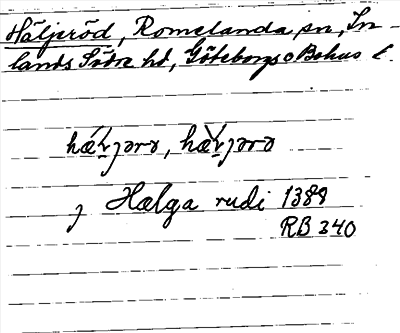 Häljeröd, Romelanda sn, In-
lands Södra hd, Göteborgs o Bohus l.
hæ̀ɽjərə, hæ̌ɽjərə
j Hælga rudi 1388
RB 340